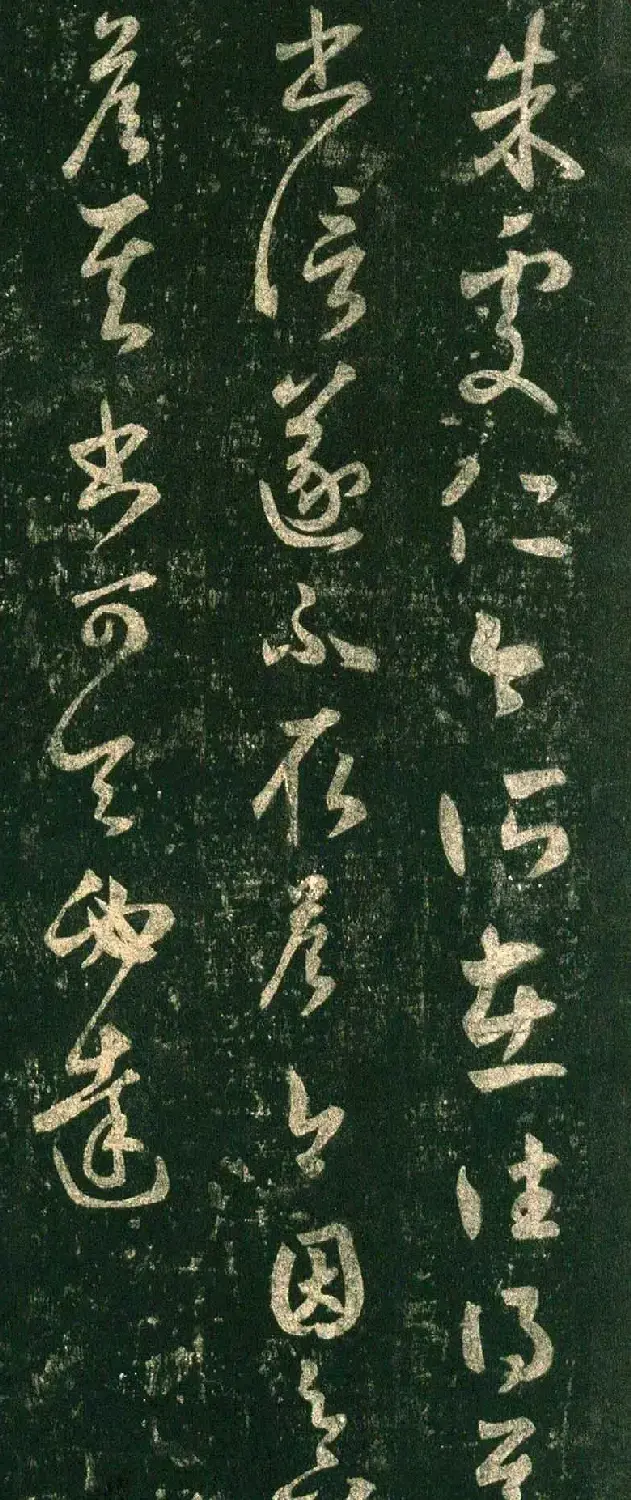 朱處仁今所在往得其
書信遂不取答今因足下
答其書可令必達